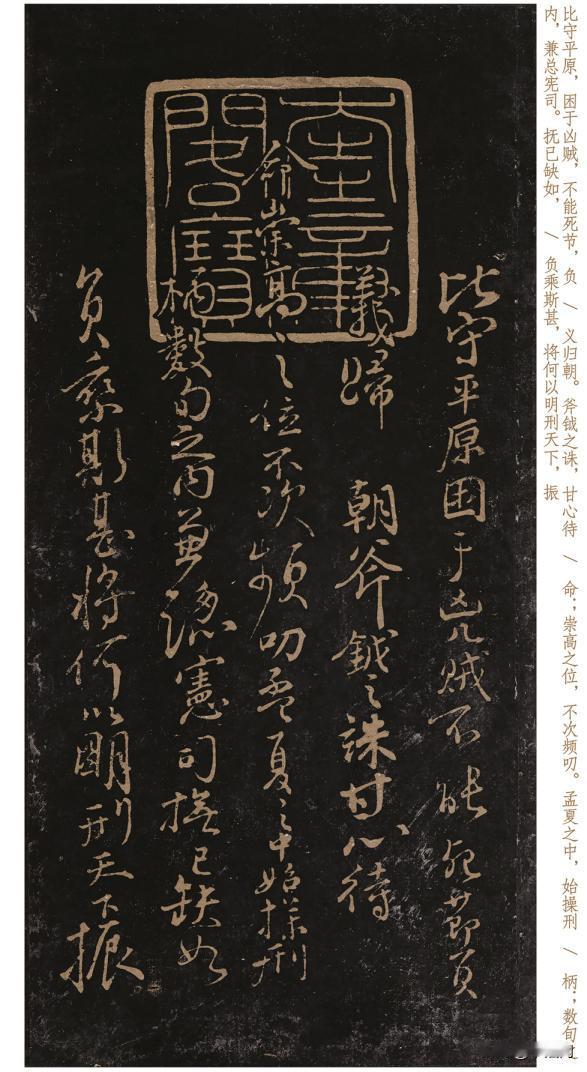 比守平原，困于凶贼，不能死节，负 / 义归朝。斧钺之诛，甘心待 / 命；崇高之位，不次频叨。孟夏之中，始操刑 / 柄；数旬之
内，兼总宪司。抚已缺如， / 负乘斯甚，将何以明刑天下，振
奎章
閣寶
比守平原困于凶賊不能死節負
義歸 朝斧鉞之誅甘心待
命崇高之位不次頻叨孟夏之中始操刑
柄數旬之內兼總憲司撫已缺如
負乘斯甚將何以明刑天下振